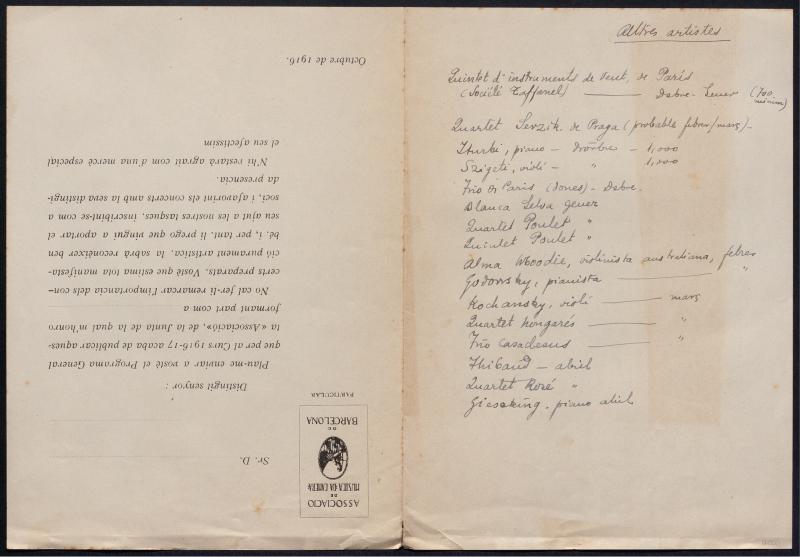 Altres artistes
Quintet d'instruments de vent, de París
(Société Taffanel) — Dsbre - Gener (700 mínim)
Quartet Sevzik de Praga (probable febrer/març) -
Iturbi, piano - Dbre - 1,000
Szigeti, violí - " 1,000
Trio de París (dones) - Dsbre.
Blanca Selva gener
Quartet Poulet "
Quintet Poulet "
Alma Moodie, violinista australiana, febrer
Godowsky, pianista — "
Kochansky, violí — març
Quartet hongarés — "
Trio Casadesus — "
Thibaud - abril
Quartet Rosé "
Gieseking - piano abril
ASSOCIACIO
DE
MUSICA DA CAMERA
DE
BARCELONA
PARTICULAR
Sr. D.
Distingit senyor :
Plau-me enviar a vostè el Programa General
que per al Curs 1916-17 acaba de publicar aques-
ta «Associació», de la Junta de la qual m'honro
formant part com a
No cal fer-li remarcar l'importancia dels con-
certs preparats. Vostè que estima tota manifesta-
ció purament artística, la sabrà reconèixer ben
bé, i, per tant, li prego que vingui a aportar el
seu ajut a les nostres tasques, inscribint-se com a
soci, i afavorint els concerts amb la seva distingi-
da presencia.
N'hi restarà agraït com d'una mercè especial
el seu afectíssim
Octubre de 1916.